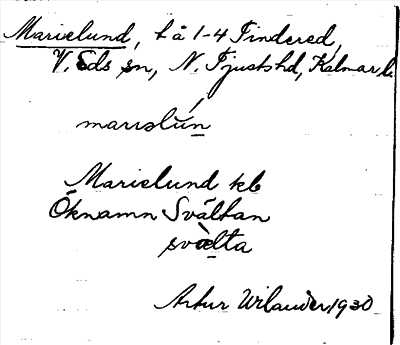 Marielund, t å 1-4 Tindered,
V. Eds sn, N. Tjusts hd, Kalmar l.
marɪəlún
Marielund kb
Öknamn Svältan
svæ̀lta
Artur Wilander 1930